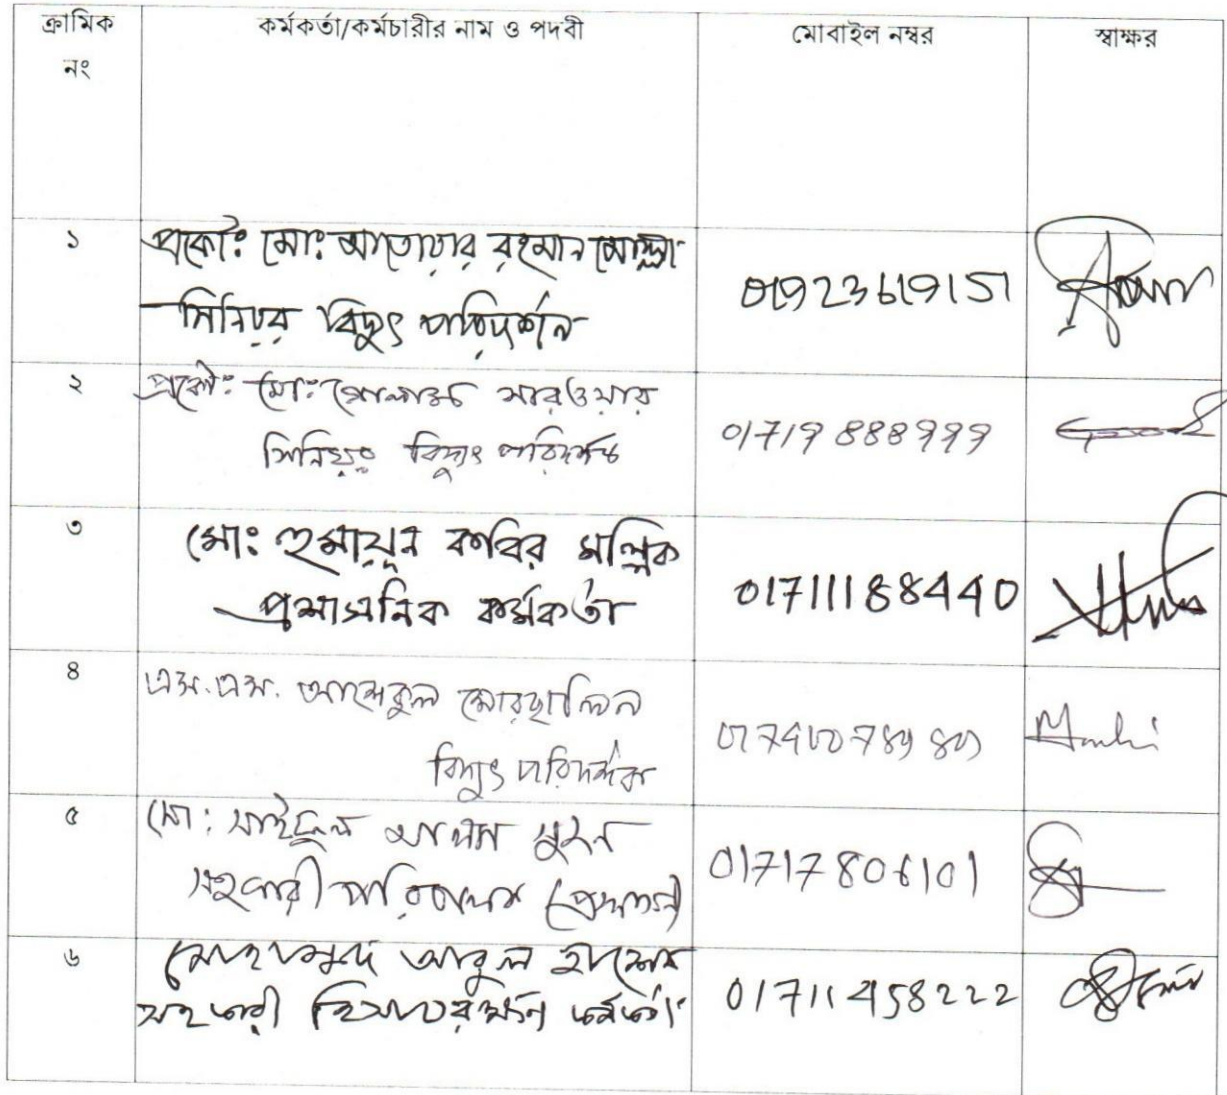 ক্রামিক নং কর্মকর্তা/কর্মচারীর নাম ও পদবী মোবাইল নম্বর স্বাক্ষর
১ প্রকৌঃ মোঃ আতোয়ার রহমান মোল্লা
সিনিয়র বিদ্যুৎ পরিদর্শন 01923619151
২ প্রকৌঃ মোঃ গোলাম সারওয়ার
সিনিয়র বিদ্যুৎ পরিদর্শক 01719888999
৩ মোঃ হুমায়ূন কবির মল্লিক
প্রশাসনিক কর্মকর্তা 01711188440
৪ এস.এস. মোরছালিন
বিদ্যুৎ পরিদর্শক
৫ মো: সাইফুল
সহকারী পরিচালক (প্রশাসন) 01717806101
৬ মোহাম্মদ আবুল হাশেম
সহকারী হিসাবরক্ষন কর্মকর্তা 01711458222